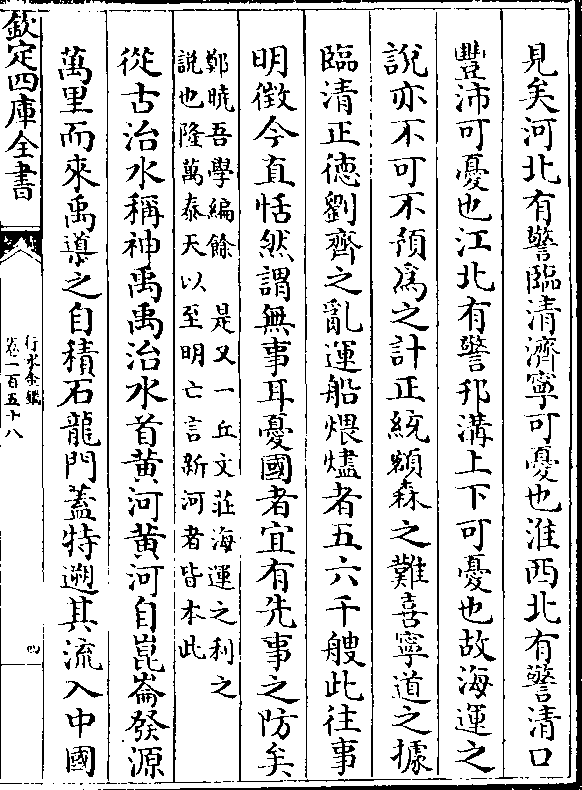 見矣河北有警臨清濟寧可憂也淮西北有警清口
豐沛可憂也江北有警邗溝上下可憂也故海運之
說亦不可不預為之計正統額森之難喜寧道之據
臨清正德劉齊之亂運船煨燼者五六千艘此往事
明徵今直恬然謂無事耳憂國者宜有先事之防矣
鄭曉吾學編餘　是又一丘文莊海運之利之
說也隆萬泰天以至明亡言新河者皆本此
從古治水稱神禹禹治水首黄河黄河自崑崙發源
萬里而來禹導之自積石龍門蓋特遡其流入中國
欽定四庫全書
行水金鑑
卷一百五十八
四